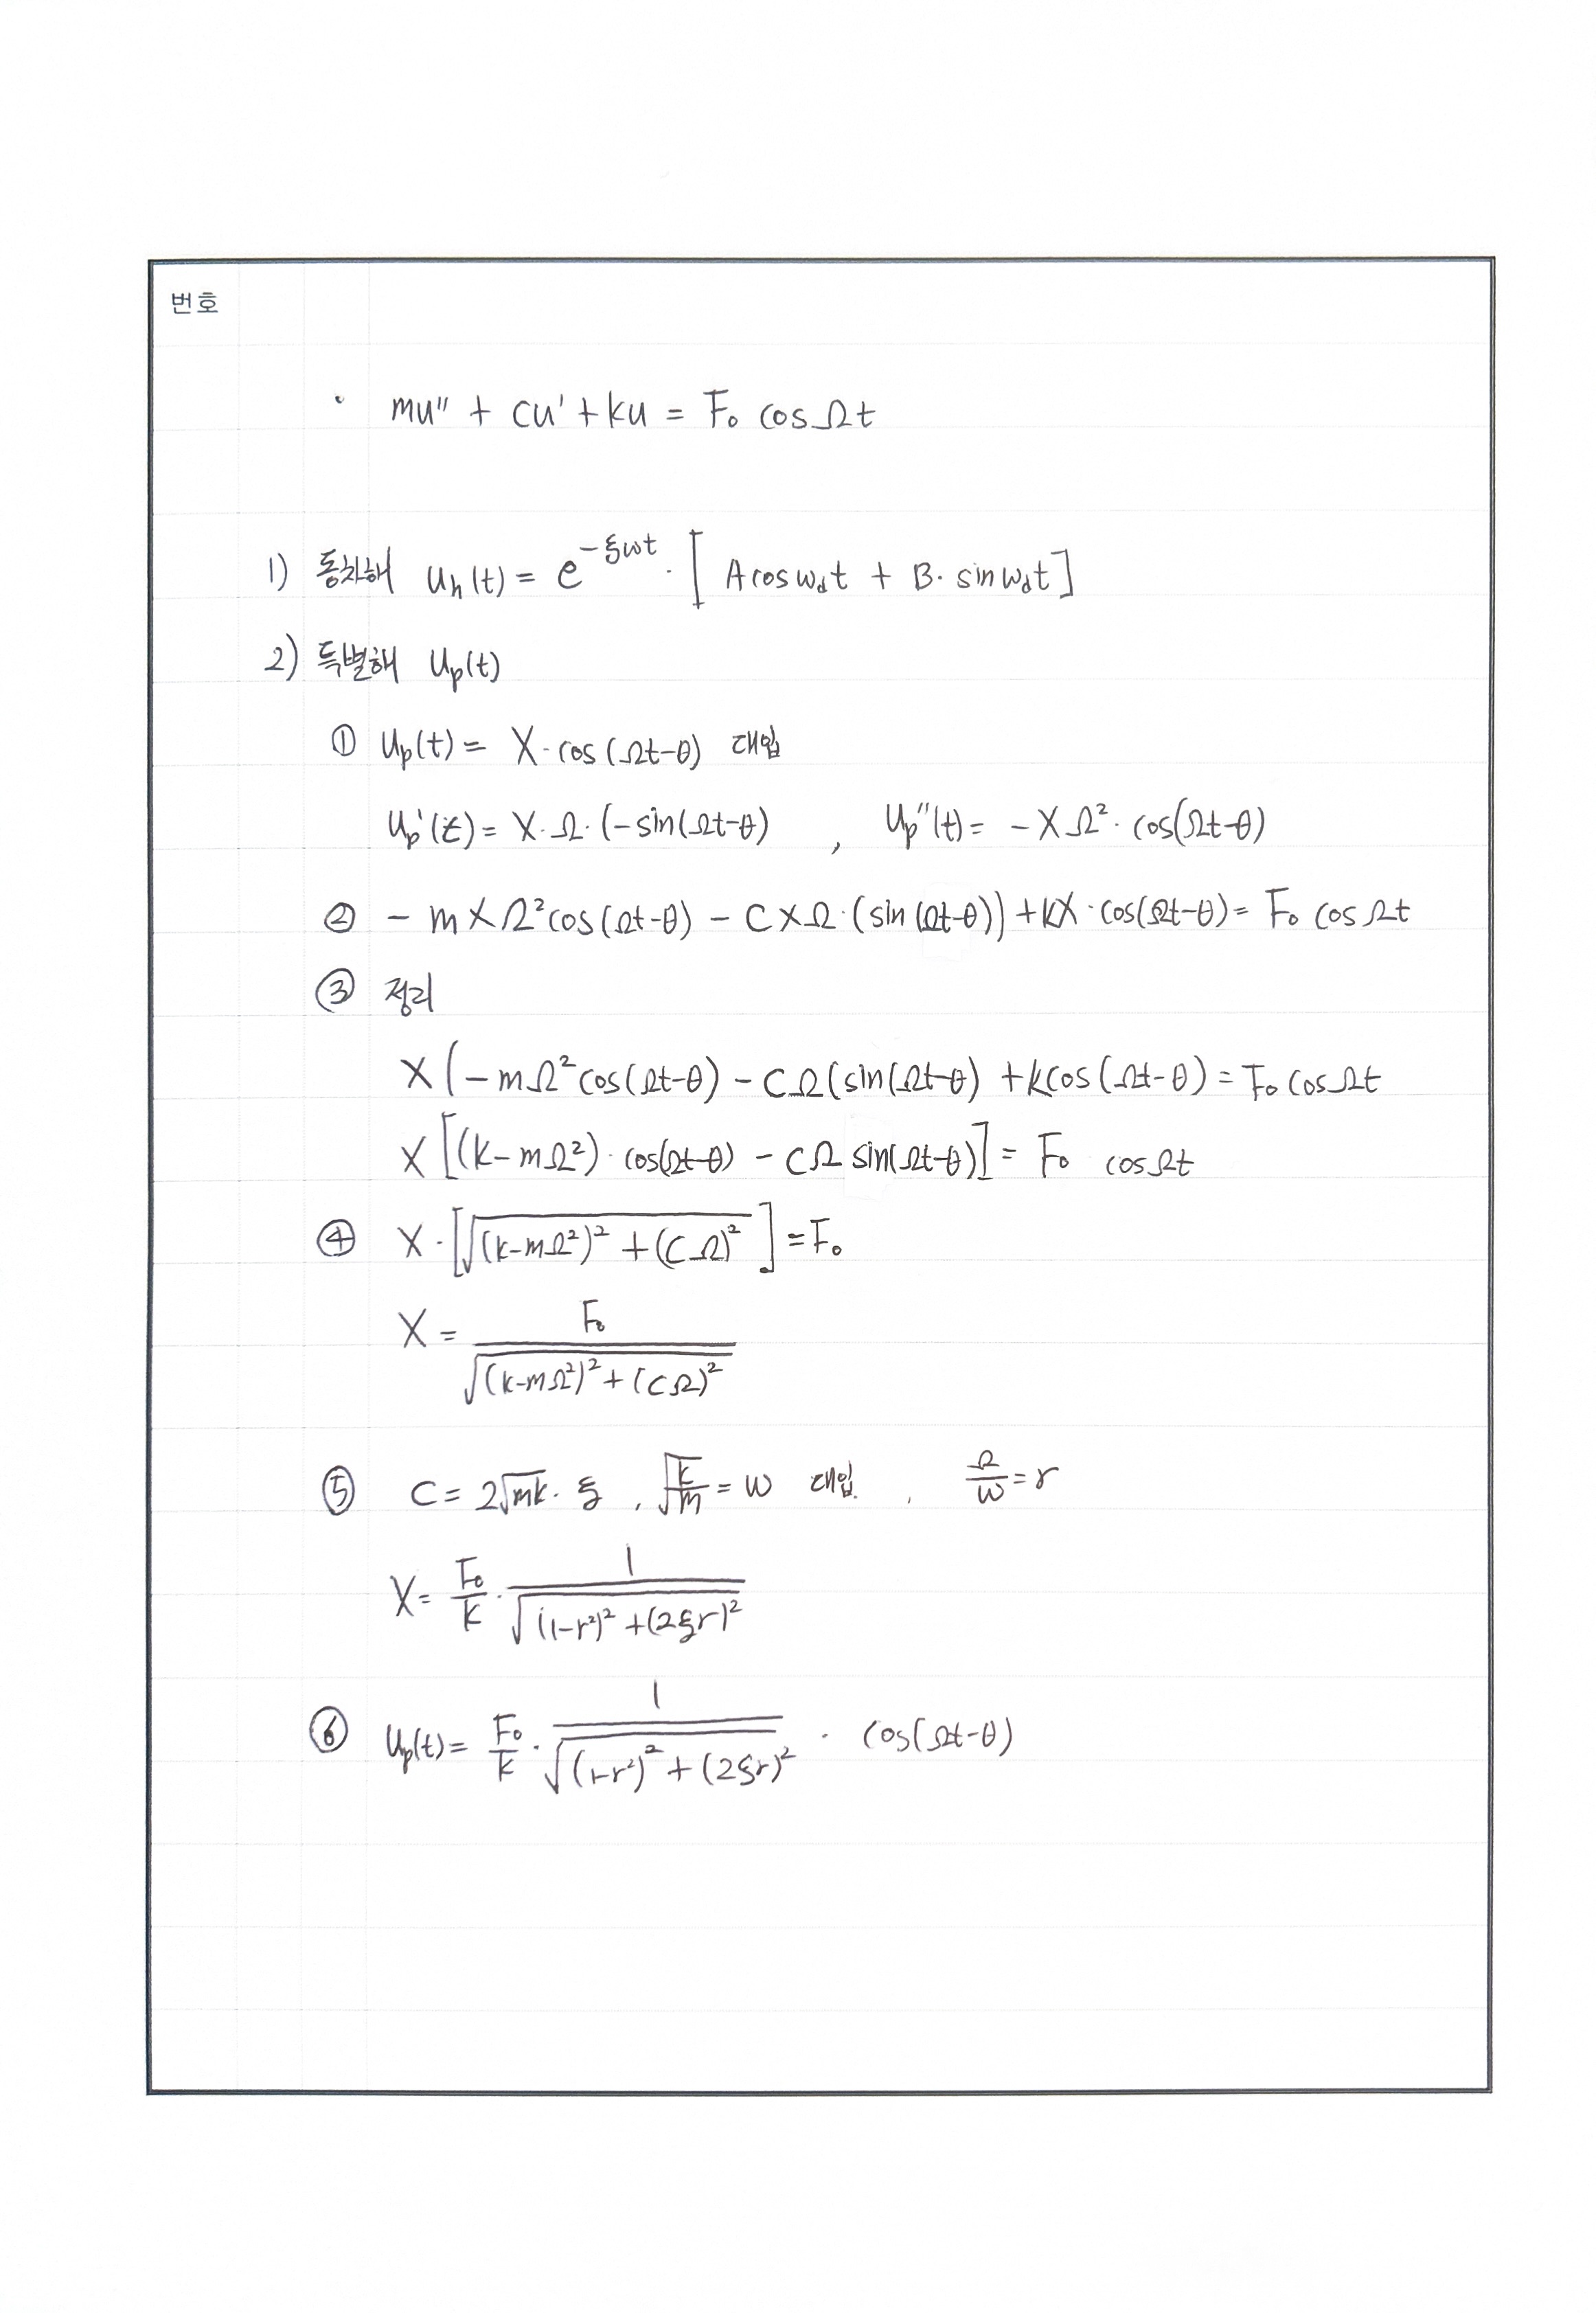 번호
· mu'' + cu' + ku = F₀ cosΩt
1) 동차해 u_h(t) = e^{-ξωt} · [ A cosω_d t + B· sinω_d t ]
2) 특별해 u_p(t)
① u_p(t) = X· cos(Ωt-θ) 대입
u_p'(t) = X·Ω· (-sin(Ωt-θ) , u_p''(t) = -XΩ²· cos(Ωt-θ)
② - mXΩ² cos(Ωt-θ) - CXΩ·(sin(Ωt-θ)) + kX·cos(Ωt-θ) = F₀ cosΩt
③ 정리
X(-mΩ² cos(Ωt-θ) - CΩ(sin(Ωt-θ) + kcos(Ωt-θ) = F₀ cosΩt
X[(k-mΩ²)· cos(Ωt-θ) - CΩ sin(Ωt-θ)] = F₀ cosΩt
④ X·[√((k-mΩ²)² + (CΩ)²)] = F₀
X = F₀ / √((k-mΩ²)² + (CΩ)²)
⑤ C = 2√mk · ξ , √(k/m) = ω 대입 , Ω/ω = r
X = F₀/k · 1/√((1-r²)² + (2ξr)²)
⑥ u_p(t) = F₀/k · 1/√((1-r²)² + (2ξr)²) · cos(Ωt-θ)